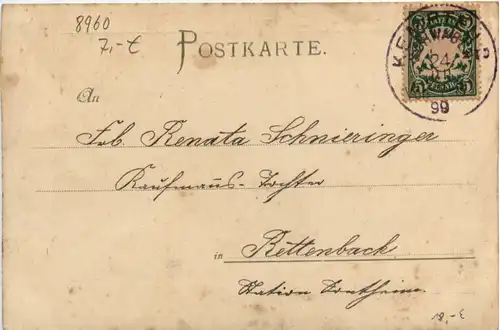 8960
7,-€
POSTKARTE.
An
Frl. Renata Schnieringer
Kaufmanns-Tochter
in Bettenbach
Station Sontheim.
24
99
18,-€